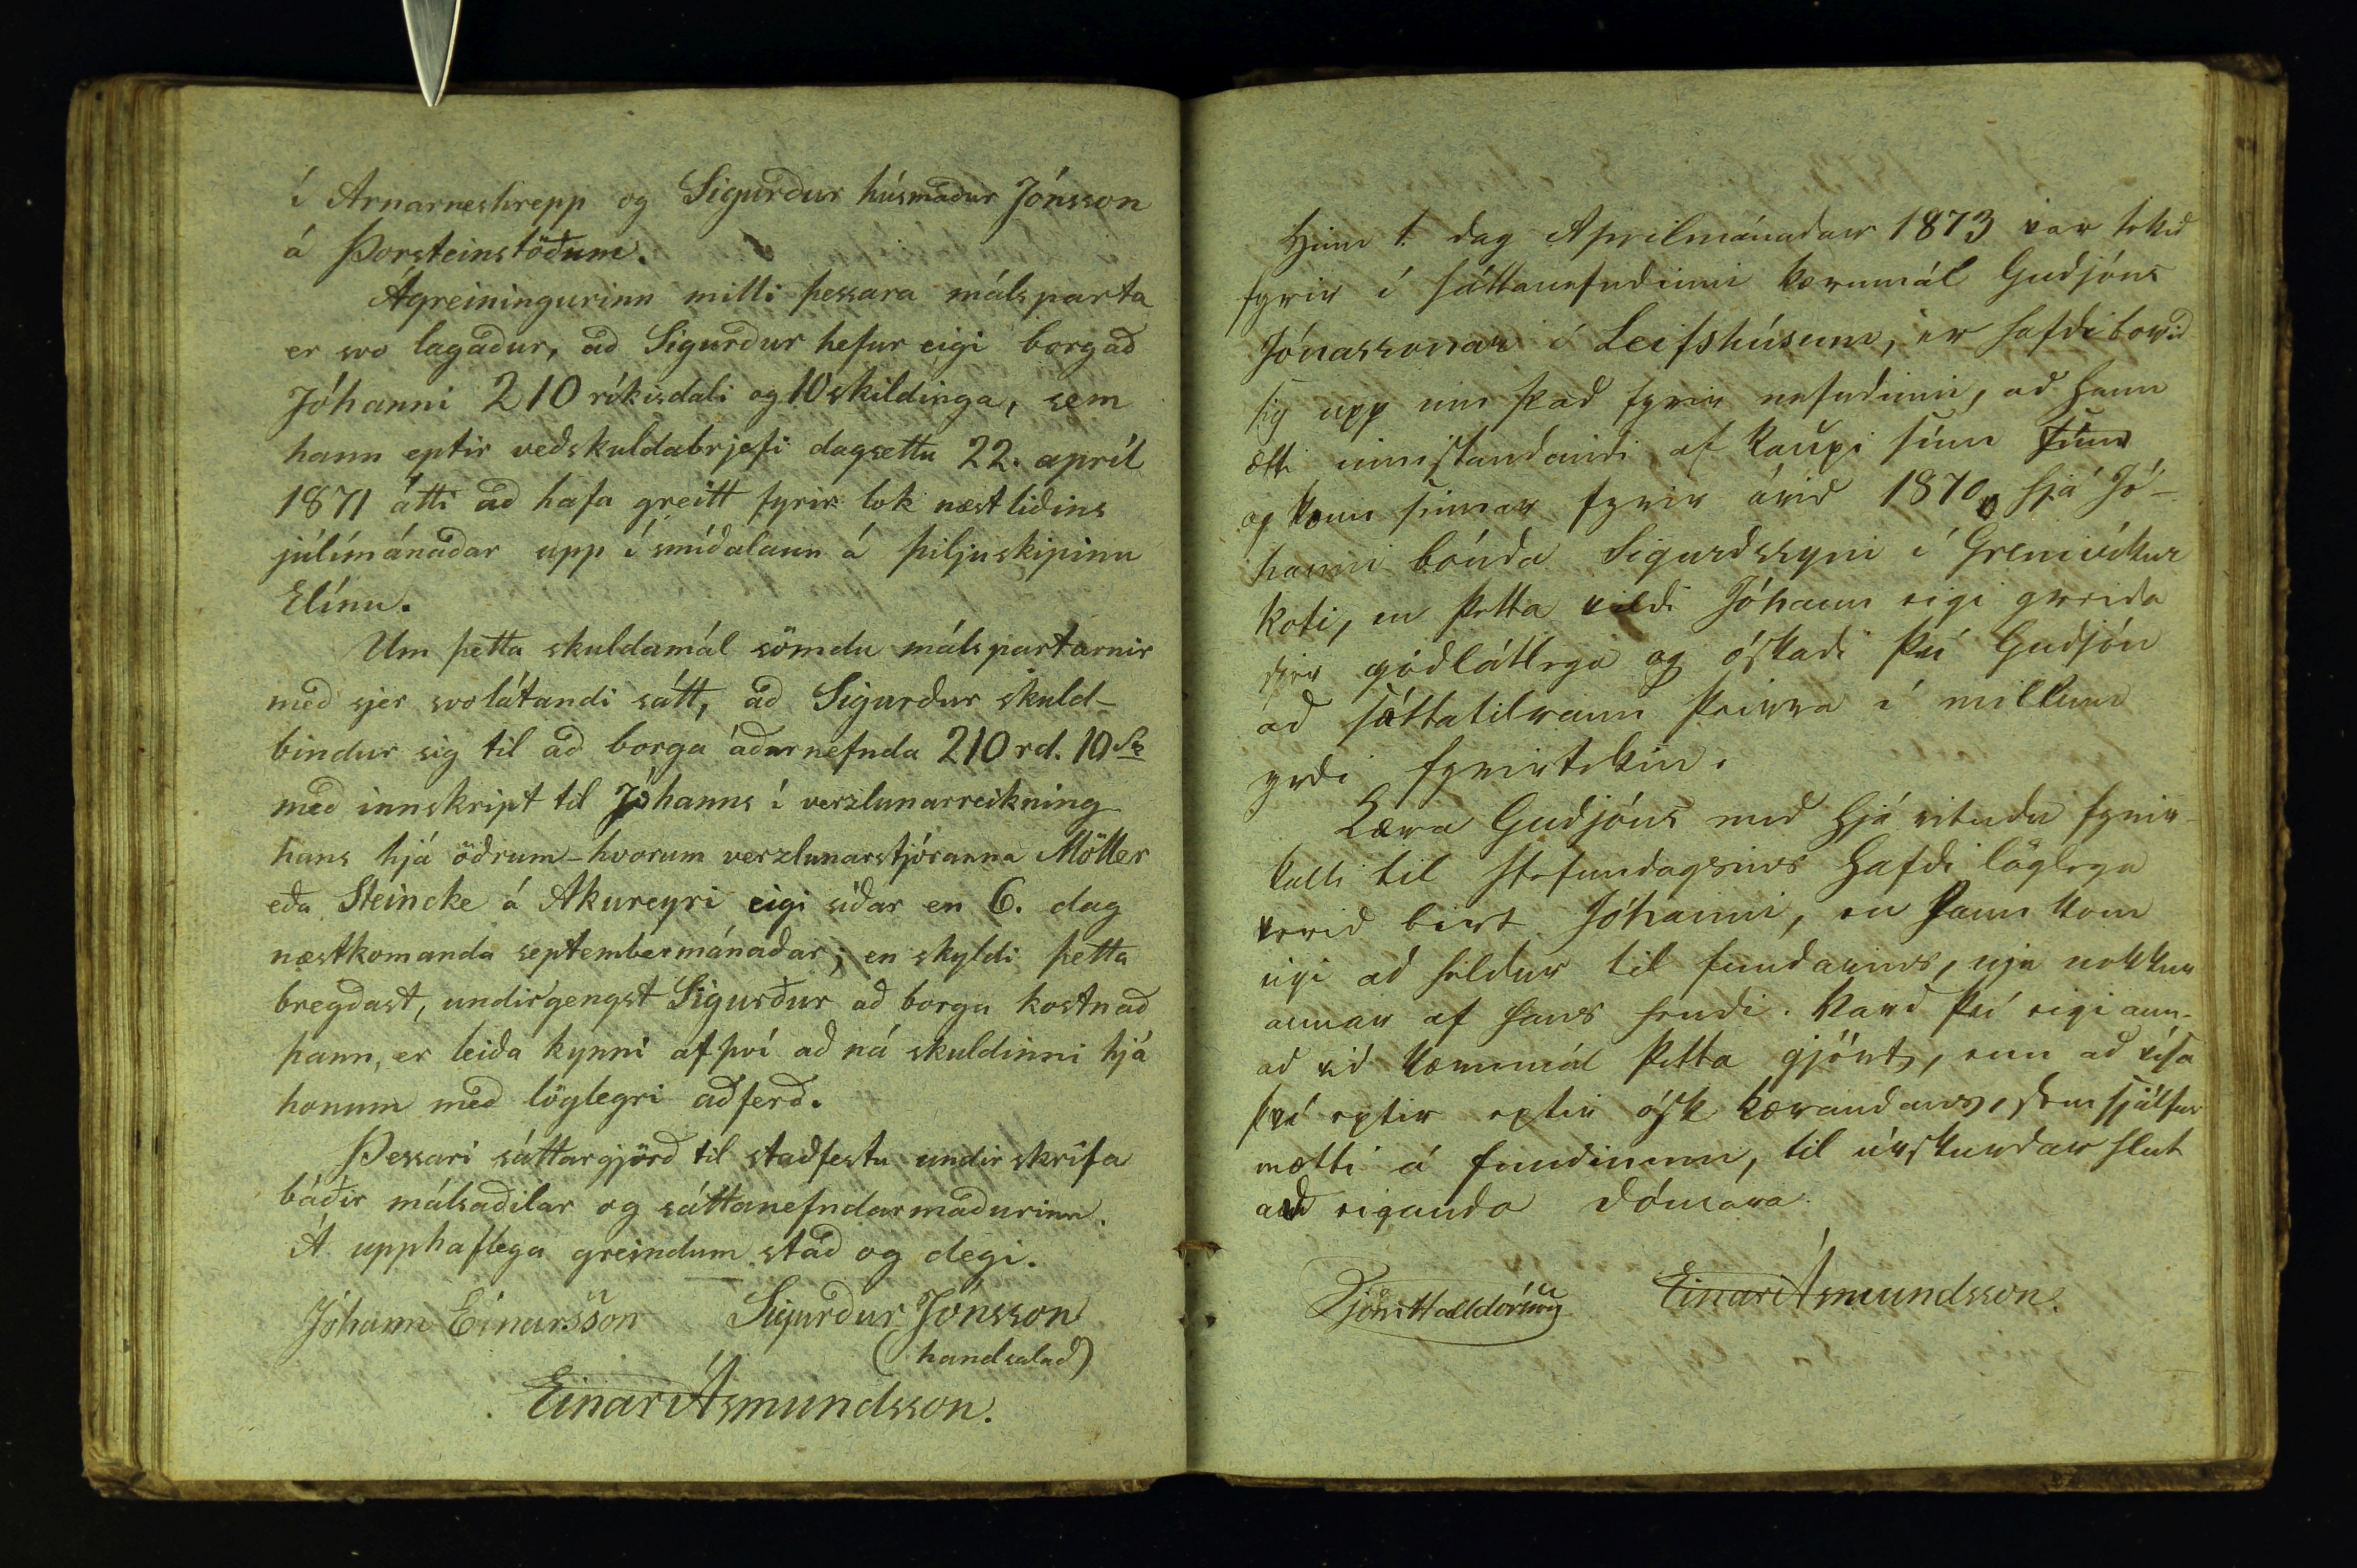 í Arnarneshrepp og Sigurður húsmaður Jónsson
á Þorsteinstöðum.
Ágreiningurinn milli þessara málsparta
er svo lagaður, að Sigurður hefur eigi borgað
Jóhanni 210 ríkisdali og 10 skildinga, sem
hann eptir veðskuldabrjefi dagsettu 22. apríl
1871 átti að hafa greitt fyrir lok næstliðins
júlímánaðar upp í smíðalaun á þiljuskipinu
Elínu.
Um þetta skuldamál sömdu málspartarnir
með sjer svolátandi sátt, að Sigurður skuld-
bindur sig til að borga áðurnefnda 210 rd. 10 sk
með innskript til Jóhanns í verzlunarreikning
hans hjá öðrum-hvorum verzlunarstjóranna Möller
eða Steincke á Akureyri eigi síðar en 6. dag
næstkomanda septembermánaðar; en skyldi þetta
bregðast, undirgengst Sigurður að borga kostnað
þann, er leiða kynni af því að ná skuldinni hjá
honum með löglegri aðferð.
Þessari sáttargjörð til staðfestu undirskrifa
báðir málsaðilar og sáttanefndarmaðurinn.
Á upphaflega greindum stað og degi.
Jóhann Einarsson Sigurður Jónsson
(handsalað)
Einar Ásmundsson.
Hinn 1. dag Aprilmánadar 1873 var tekið
fyrir í sáttanefndinni kærumál Guðjóns
Jónassonar í Leifshúsum, er hafði borið
sig upp um það fyrir nefndinni, að hann
ætti innistandandi af kaupi sínu
og konu sinnar fyrir árið 1870, hjá Jó-
hanni bónda Sigurdssyni í Grenivíkur
koti, en þetta vildi Jóhann eigi greiða
sjer góðlátlega og óskaði því Guðjón
að sáttatilraun þeirra í millum
yrði fyrirtekin.
Kæra Guðjóns með hjá rituðu fyrir-
kalli til stefnudagsins hafði löglega
verið birt Jóhanni, en hann kom
eigi að heldur til fundarins, nje nokkur
annar af hans hendi. Varð því eigi ann-
að við kærumál þetta gjört, enn að vísa
því eptir eptir ósk kærandans, sem sjálfur
mætti á fundinum, til úrskurðar hlut
að eiganda dómara.
Björn Halldórsson Einar Ásmundsson.